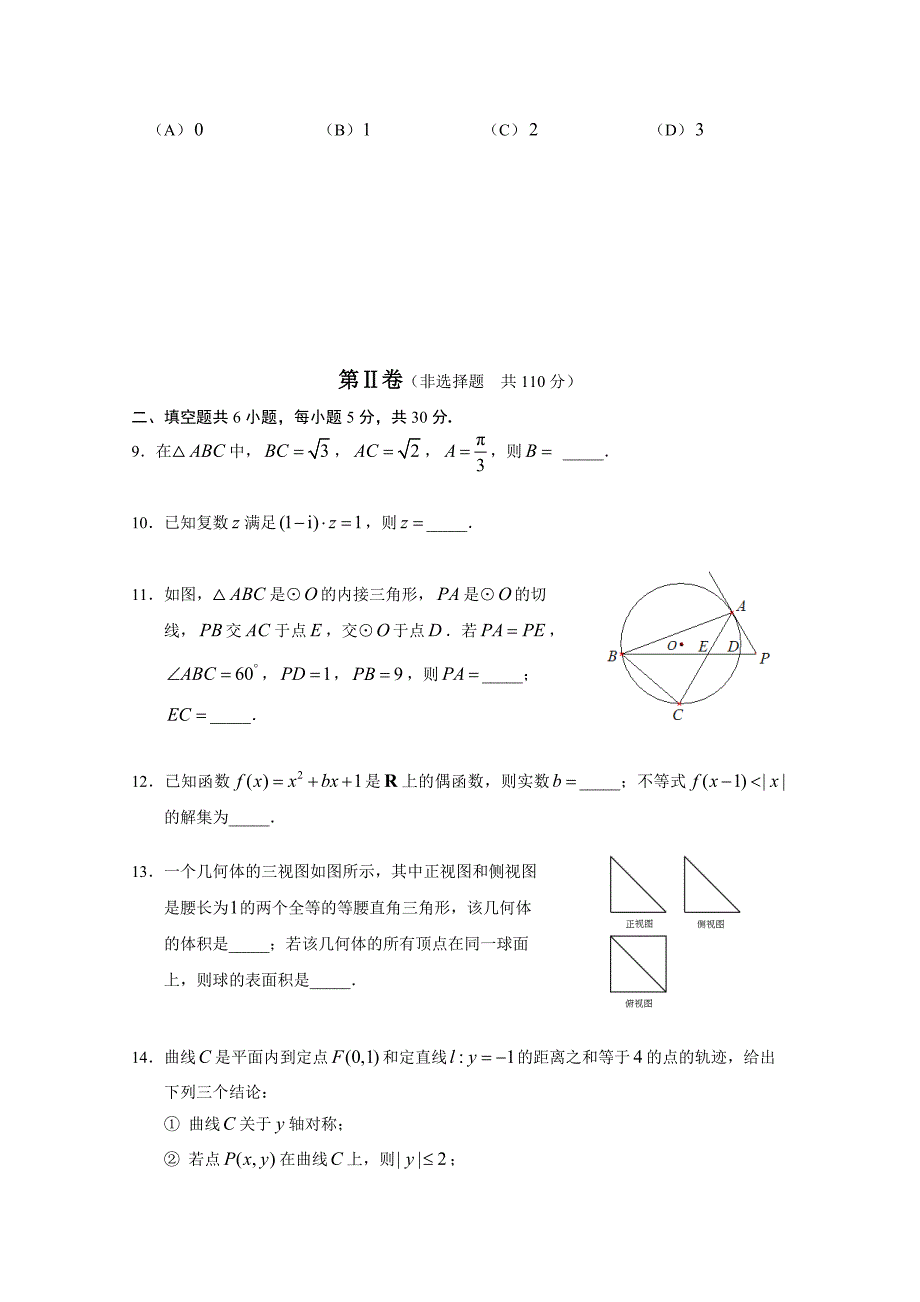 （A）0 （B）1 （C）2 （D）3
第Ⅱ卷（非选择题 共 110 分）
二、填空题共 6 小题，每小题 5 分，共 30 分．
9．在△ABC 中，BC = √3，AC = √2，A = π/3，则 B = _____．
10．已知复数 z 满足 (1−i)·z = 1，则 z = _____．
11．如图，△ABC 是⊙O 的内接三角形，PA 是⊙O 的切
线，PB 交 AC 于点 E，交⊙O 于点 D．若 PA = PE，
∠ABC = 60°，PD = 1，PB = 9，则 PA = _____；
EC = _____．
A
B
O
E
D
P
C
12．已知函数 f(x) = x² + bx + 1 是 R 上的偶函数，则实数 b = _____；不等式 f(x−1) < | x |
的解集为_____．
13．一个几何体的三视图如图所示，其中正视图和侧视图
是腰长为1的两个全等的等腰直角三角形，该几何体
的体积是_____；若该几何体的所有顶点在同一球面
上，则球的表面积是_____．
正视图 侧视图
俯视图
14．曲线 C 是平面内到定点 F(0,1) 和定直线 l : y = −1 的距离之和等于 4 的点的轨迹，给出
下列三个结论：
① 曲线 C 关于 y 轴对称；
② 若点 P(x, y) 在曲线 C 上，则 | y | ≤ 2；